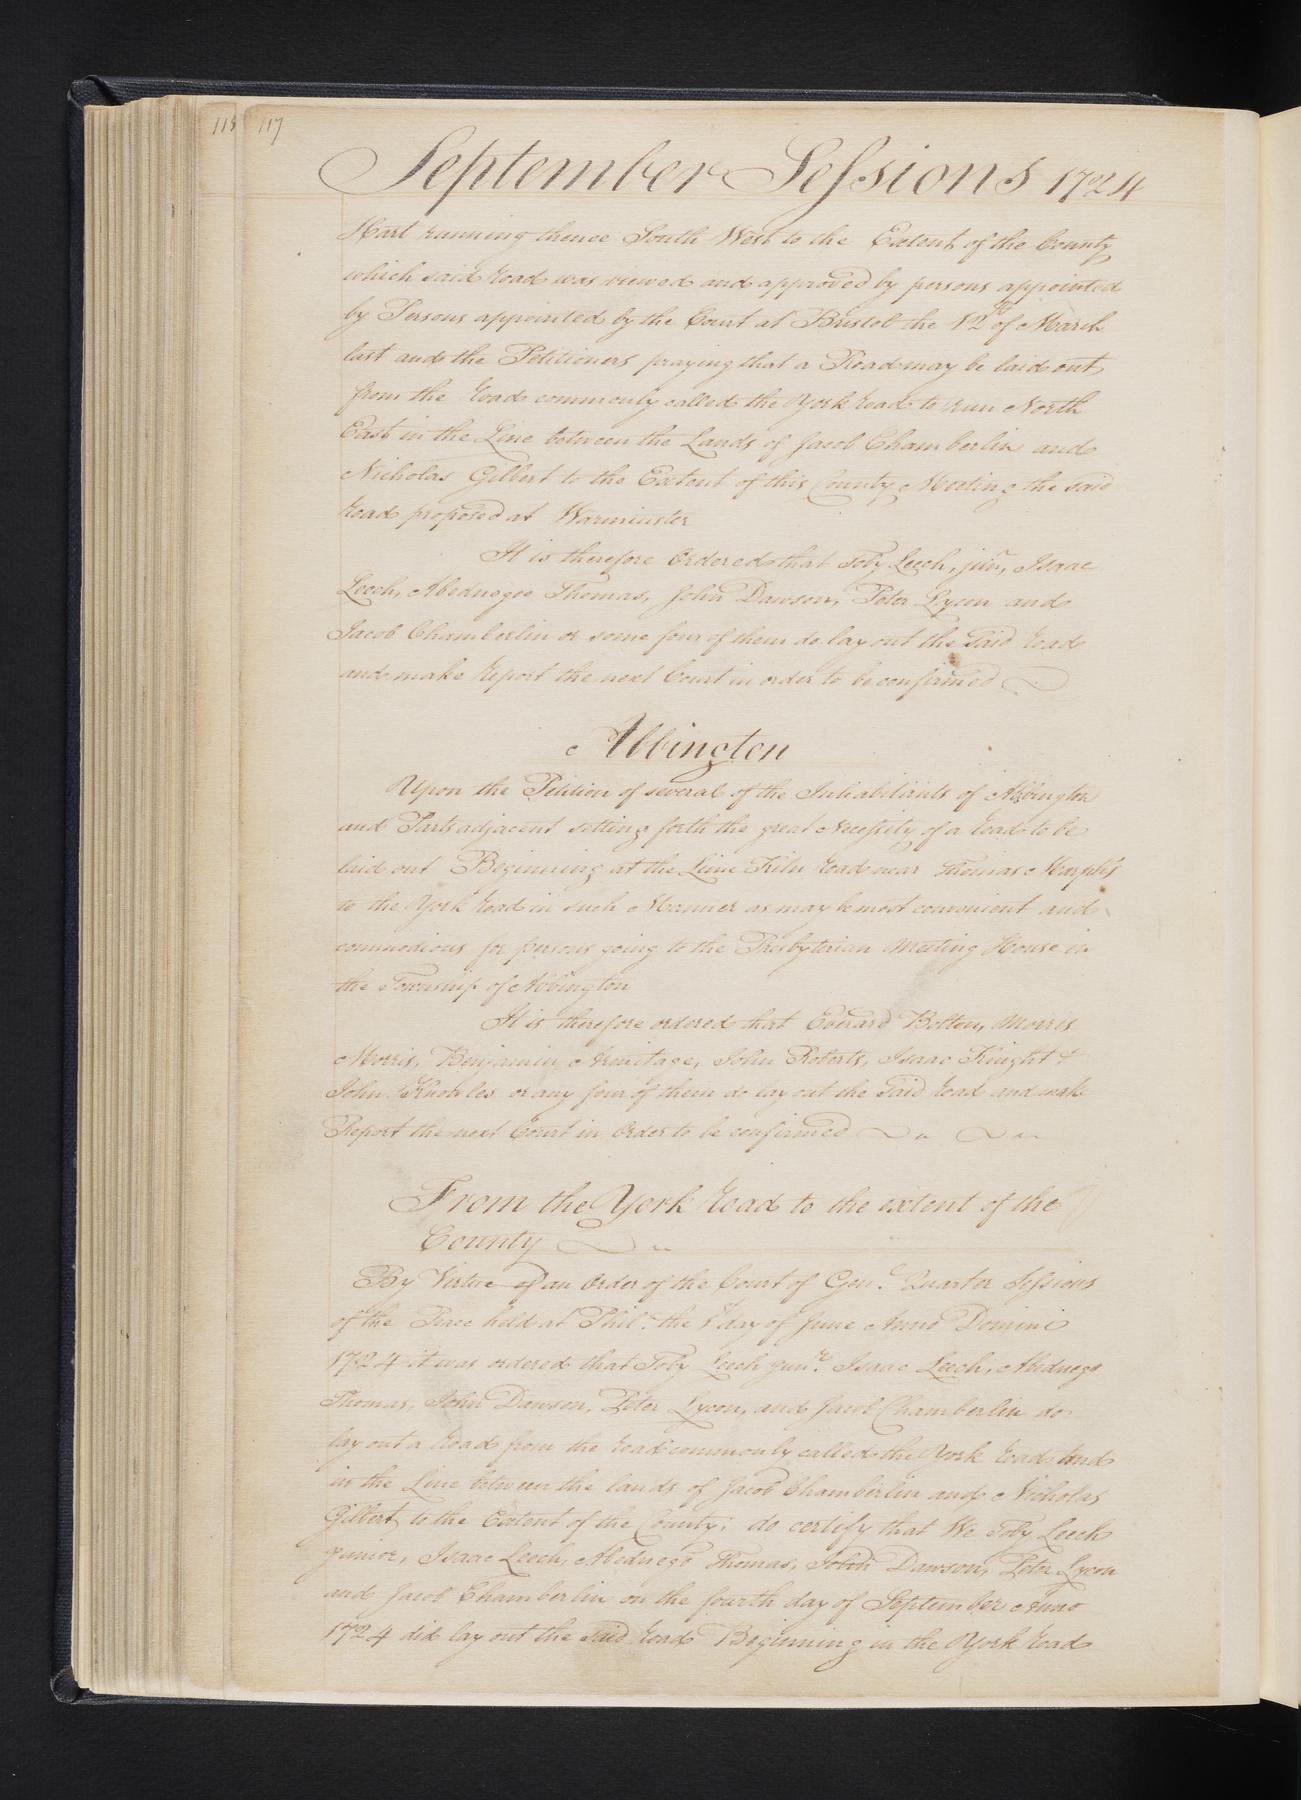 115 117
September Sessions 1724
Hart running thence South West to the Extent of the County
which said road was viewed and approved by persons appointed
by Persons appointed by the Court at Bristol the 12th of March
last and the Petitioners praying that a Road may be laid out
from the road commonly called the York road to run North
East in the Line between the Lands of Jacob Chamberlin and
Nicholas Gilbert to the Extent of this County Meeting the said
road proposed at Warminster
It is therefore Ordered that Toby Leech, junr, Isaac
Leech, Abednegoe Thomas, John Dawson, Peter Lycon and
Jacob Chamberlin or some four of them do lay out the said road
and make report the next Court in order to be confirmed
Abbington
Upon the Petition of several of the Inhabitants of Abbington
and Parts adjacent setting forth the great Necessity of a road to be
laid out Beginning at the Lime Kiln road near Thomas
to the York road in such Manner as may be most convenient and
commodious for persons going to the Presbyterian Meeting House in
the Township of Abbington
It is therefore ordered that Everard Bolton, Morris
Morris, Benjamin Armitage, John Roberts, Isaac Knight &
John Knowles or any four of them do lay out the said road and make
Report the next Court in Order to be confirmed
From the York road to the extent of the
County
By Virtue of an Order of the Court of Genl. Quarter Sessions
of the Peace held at Phila. the 1st day of June Anno Domini
1724 it was ordered that Toby Leech junr. Isaac Leech, Abednego
Thomas, John Dawson, Peter Lycon, and Jacob Chamberlin do
lay out a road from the road commonly called the York road and
in the Line between the lands of Jacob Chamberlin and Nicholas
Gilbert to the Extent of the County; do certify that We Toby Leech
junior, Isaac Leech, Abednego Thomas, John Dawson, Peter Lycon
and Jacob Chamberlin on the fourth day of September Anno
1724 did lay out the said road Beginning in the York road